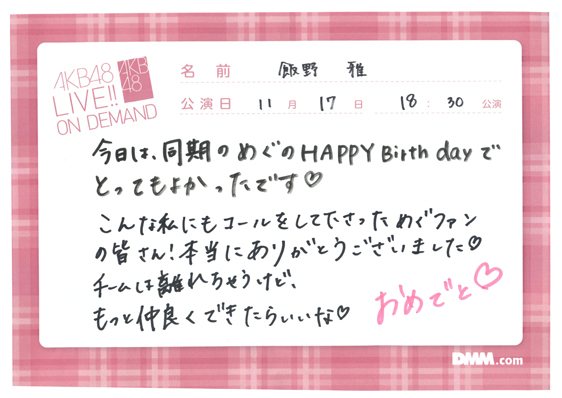 AKB48
LIVE!!
ON DEMAND
AKB
48
名前 飯野 雅
公演日 11月 17日 18:30公演
今日は、同期のめぐのHAPPY Birth dayで
とってもよかったです♡
こんな私にもコールをして下さっためぐファン
の皆さん!本当にありがとうございました♡
チームは離れちゃうけど、
もっと仲良くできたらいいな♡
おめでと♡
DMM.com